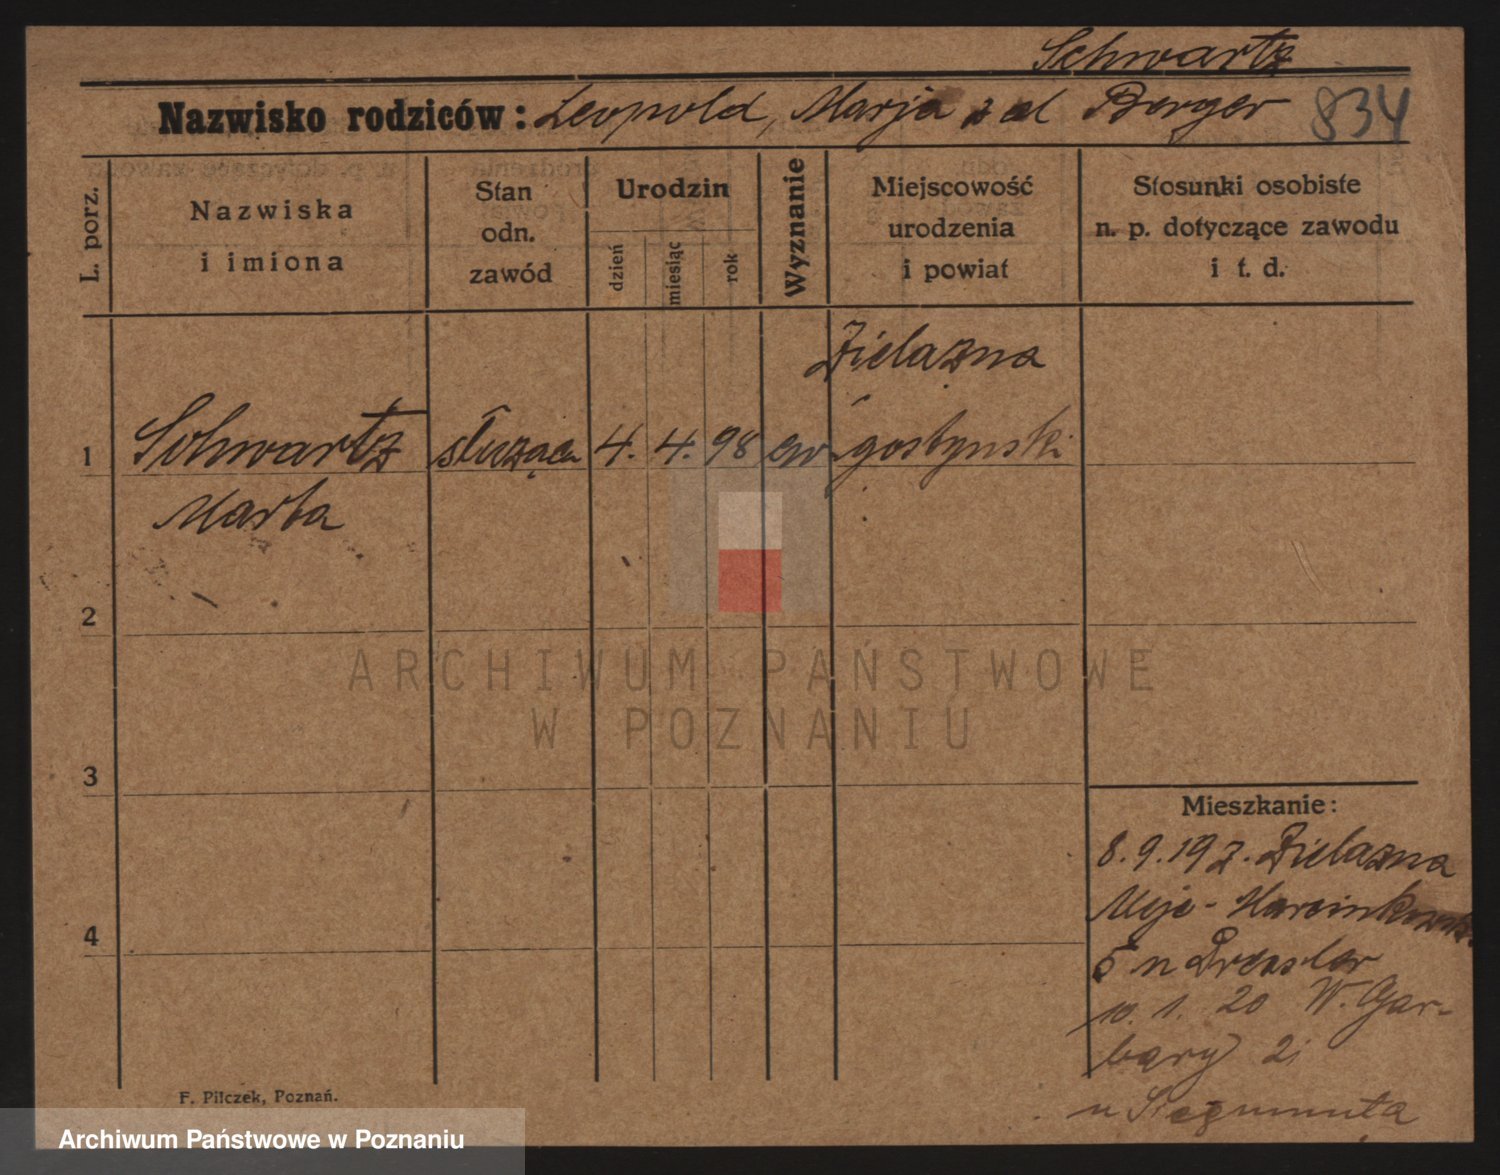 Schwartz
Nazwisko rodziców: Leopold, Marja z d Berger 834
L. porz.
Nazwiska
i imiona
Stan
odn.
zawód
Urodzin
dzień
miesiąc
rok
Wyznanie
Miejscowość
urodzenia
i powiat
Stosunki osobiste
n. p. dotyczące zawodu
i t. d.
Zielazna
1 Schwartz służąca 4. 4. 98 ew. gostynski
Marta
2
ARCHIWUM PAŃSTWOWE
W POZNANIU
3
Mieszkanie:
8.9.19 z. Zielazna
Aleje-Marcinkowsk.
4
5 n Drexler
10. 1. 20 W. Gar-
bary 21
u Siegmunta
F. Pilczek, Poznań.
Archiwum Państwowe w Poznaniu